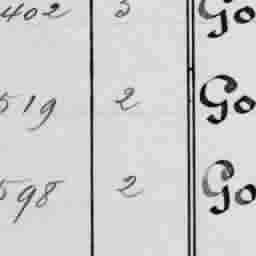 402 3 Go
519 2 Go
598 2 Go